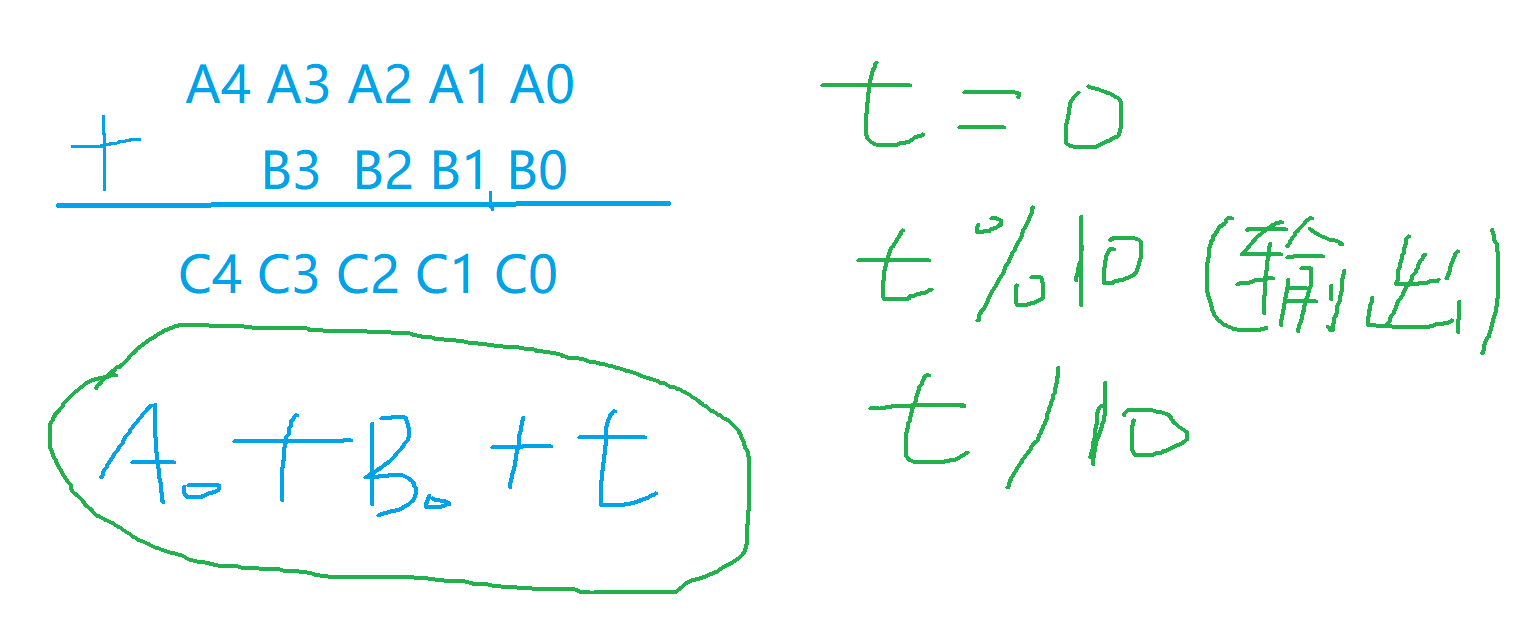 A4 A3 A2 A1 A0
+ B3 B2 B1 B0
C4 C3 C2 C1 C0
A0+B0+t
t=0
t%10(输出)
t/10